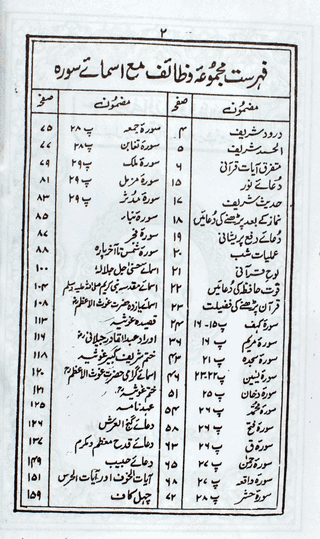 ۲
فہرست مجموعہ وظائف مع اسمائے سورہ
مضمون صفحہ مضمون صفحہ
درود شریف ۴
الحمد شریف ۵
متفرق آیات قرآنی ۶
دعائے نور ۱۵
حدیث شریف ۱۷
نماز کے بعد پڑھنے کی دعائیں ۱۸
دعائے دفع پریشانی ۱۹
عملیات شب ۲۰
لوح قرآنی ۲۱
قوت حافظہ کی دعائیں ۲۲
قرآن پڑھنے کی فضیلت ۲۳
سورۃ کہف پ ۱۵-۱۶ ۲۴
سورۃ مریم پ ۱۶ ۳۶
سورۃ سجدہ پ ۲۱ ۴۳
سورۃ یٰسین پ ۲۲-۲۳ ۴۶
سورۃ دخان پ ۲۵ ۵۱
سورۃ محمد پ ۲۶ ۵۴
سورۃ فتح پ ۲۶ ۵۸
سورۃ ق پ ۲۶ ۶۳
سورۃ رحمٰن پ ۲۷ ۶۵
سورۃ واقعہ پ ۲۷ ۶۸
سورۃ حشر پ ۲۸ ۷۲
سورۃ جمعہ پ ۲۸ ۷۵
سورۃ تغابن پ ۲۸ ۷۷
سورۃ ملک پ ۲۹ ۷۹
سورۃ مزمل پ ۲۹ ۸۱
سورۃ مدثر پ ۲۹ ۸۳
سورۃ نباء ۸۵
سورۃ فجر ۸۷
سورۃ شمس تا آخر پارہ ۸۸
اسمائے حسنیٰ جل جلالہ ۱۰۰
اسمائے مقدسہ نبی کریم صلی اللہ علیہ وسلم ۱۰۴
اسمائے یازدہ حضرت غوث الاعظم ۱۰۸
قصیدہ غوثیہ ۱۱۳
اوراد عبدالقادر جیلانی ۱۱۶
ختم شریف کبیر غوثیہ ۱۱۸
اسمائے گرامی حضرت غوث الاعظم ۱۲۰
ختم غوثیہ ۱۲۱
عہد نامہ ۱۲۵
دعائے گنج العرش ۱۲۶
دعائے قدح معظم و مکرم ۱۳۷
دعائے حبیب ۱۴۹
آیات الخوف اور آیات الحرس ۱۵۱
چہل کاف ۱۵۹